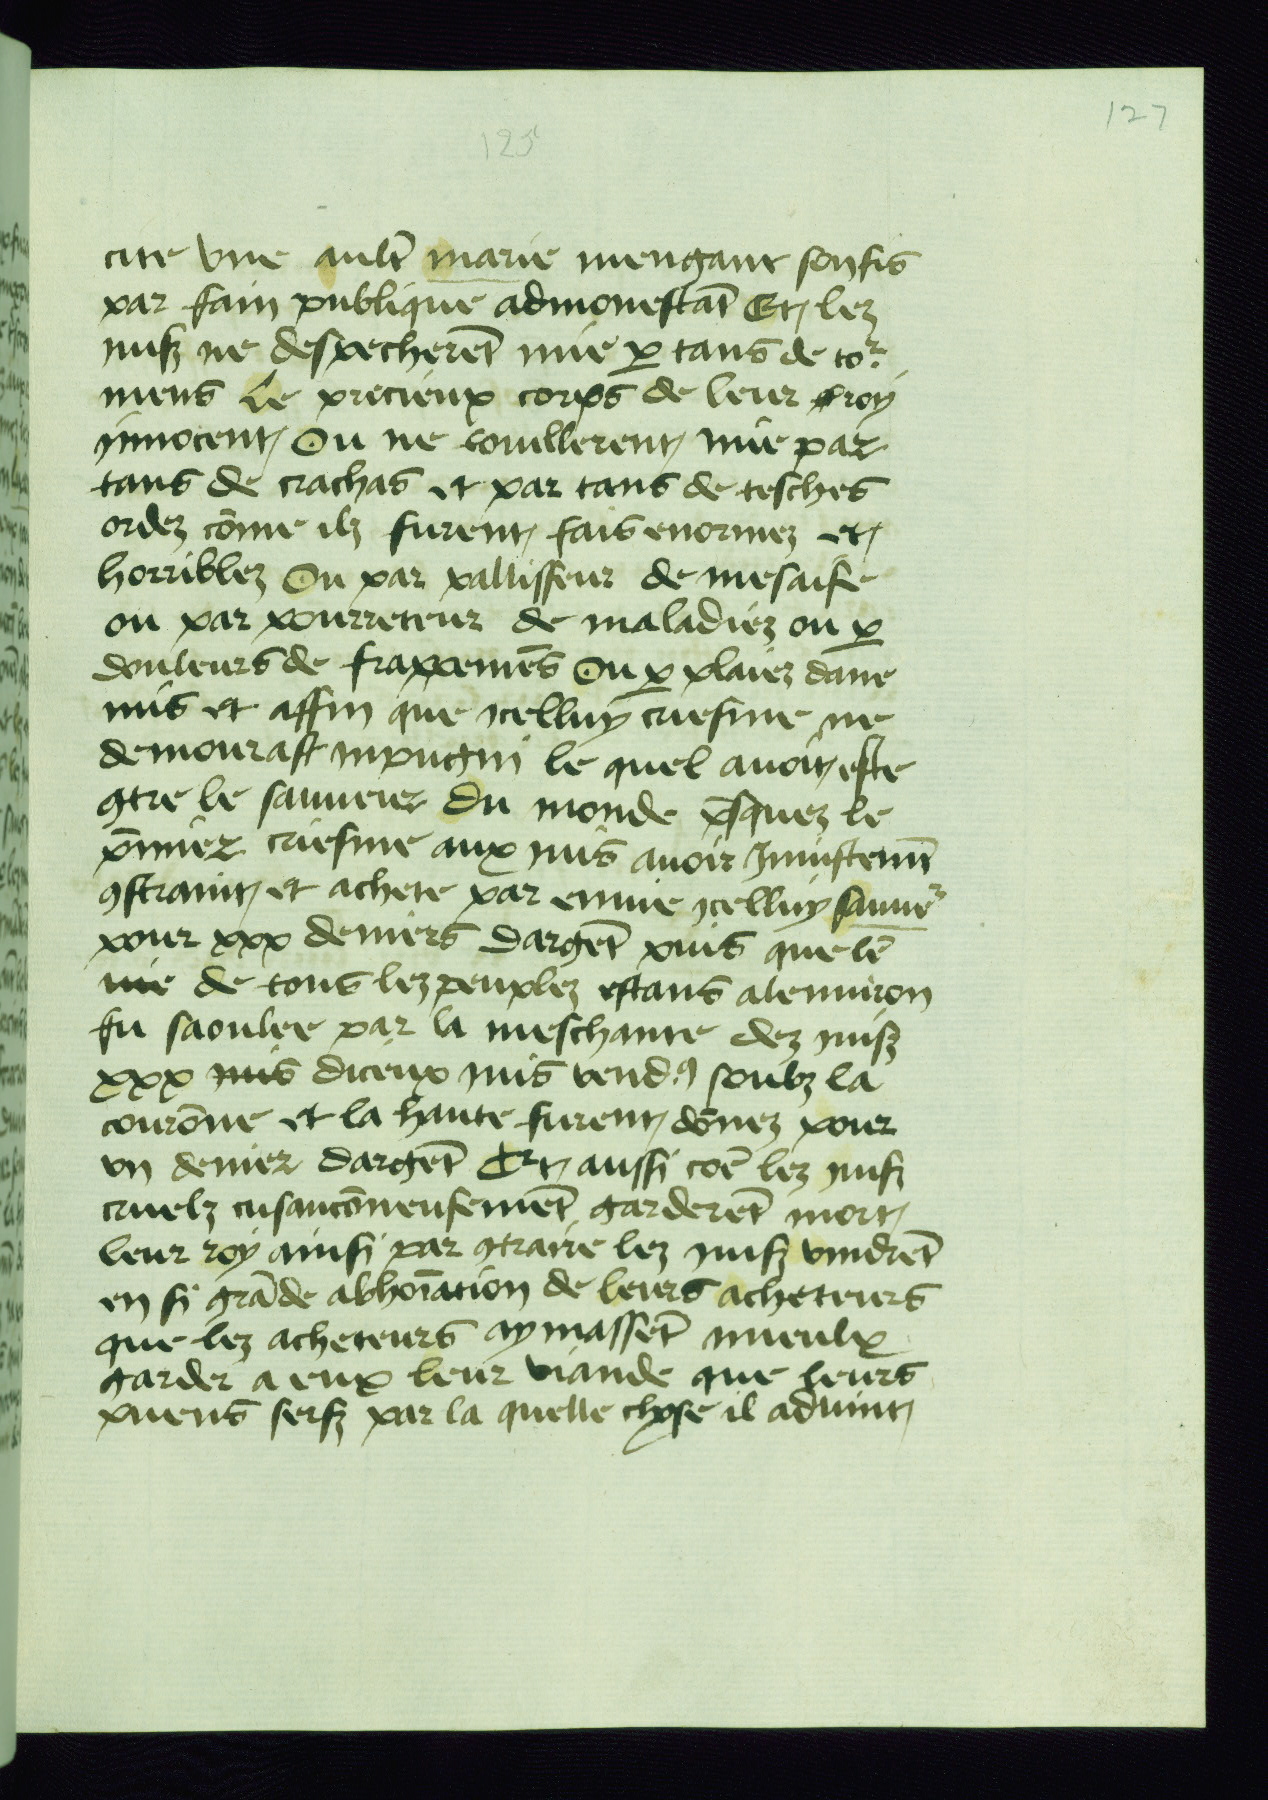 127
125
cite vne aultē marie mengant son fis
par fain publique admonestāt Et lez
iuifz ne despecherēt mie ꝑ tans de toʳ
mens Le precieux corps de leur roy
innocent Ou ne touillerent mie par
tans de crachas et par tans de tesches
ordez cōme ilz furent fais enormez et
horriblez Ou par pallisseur de mesaise
ou par pourreteur de maladiez ou ꝑ
douleurs de frappemēs Ou ꝑ plaiez dane
mis et affin que icelluy criesme ne
demourast inpugni le quel auoit este
ꝯtre le sauueur du monde ꝑsquez le
p̄mier criesme aux iuis auoir Iniustemēt
ꝯstraint et achete par enuie icelluy sauueʳ
pour xxx deniers dargēt puis que lē
uie de tous lez peuplez estans alenuiron
fu saoulee par la meschante dez iuifz
xxx iuis diceux iuis vendꝰ soubz la
courōne et la hante furent dōnez pour
vn denier dargēt Et aussi cōe lez iuifz
cruelz cusancōneusemēt garderēt mort
leur roy ainsi par ꝯtraire lez iuifz vindrēt
en si grāde abhoīation de leurs acheteurs
que lez acheteurs aymassēt mieulx
garder a eux leur viande que leurs
puens serfz par la quelle chose il aduint